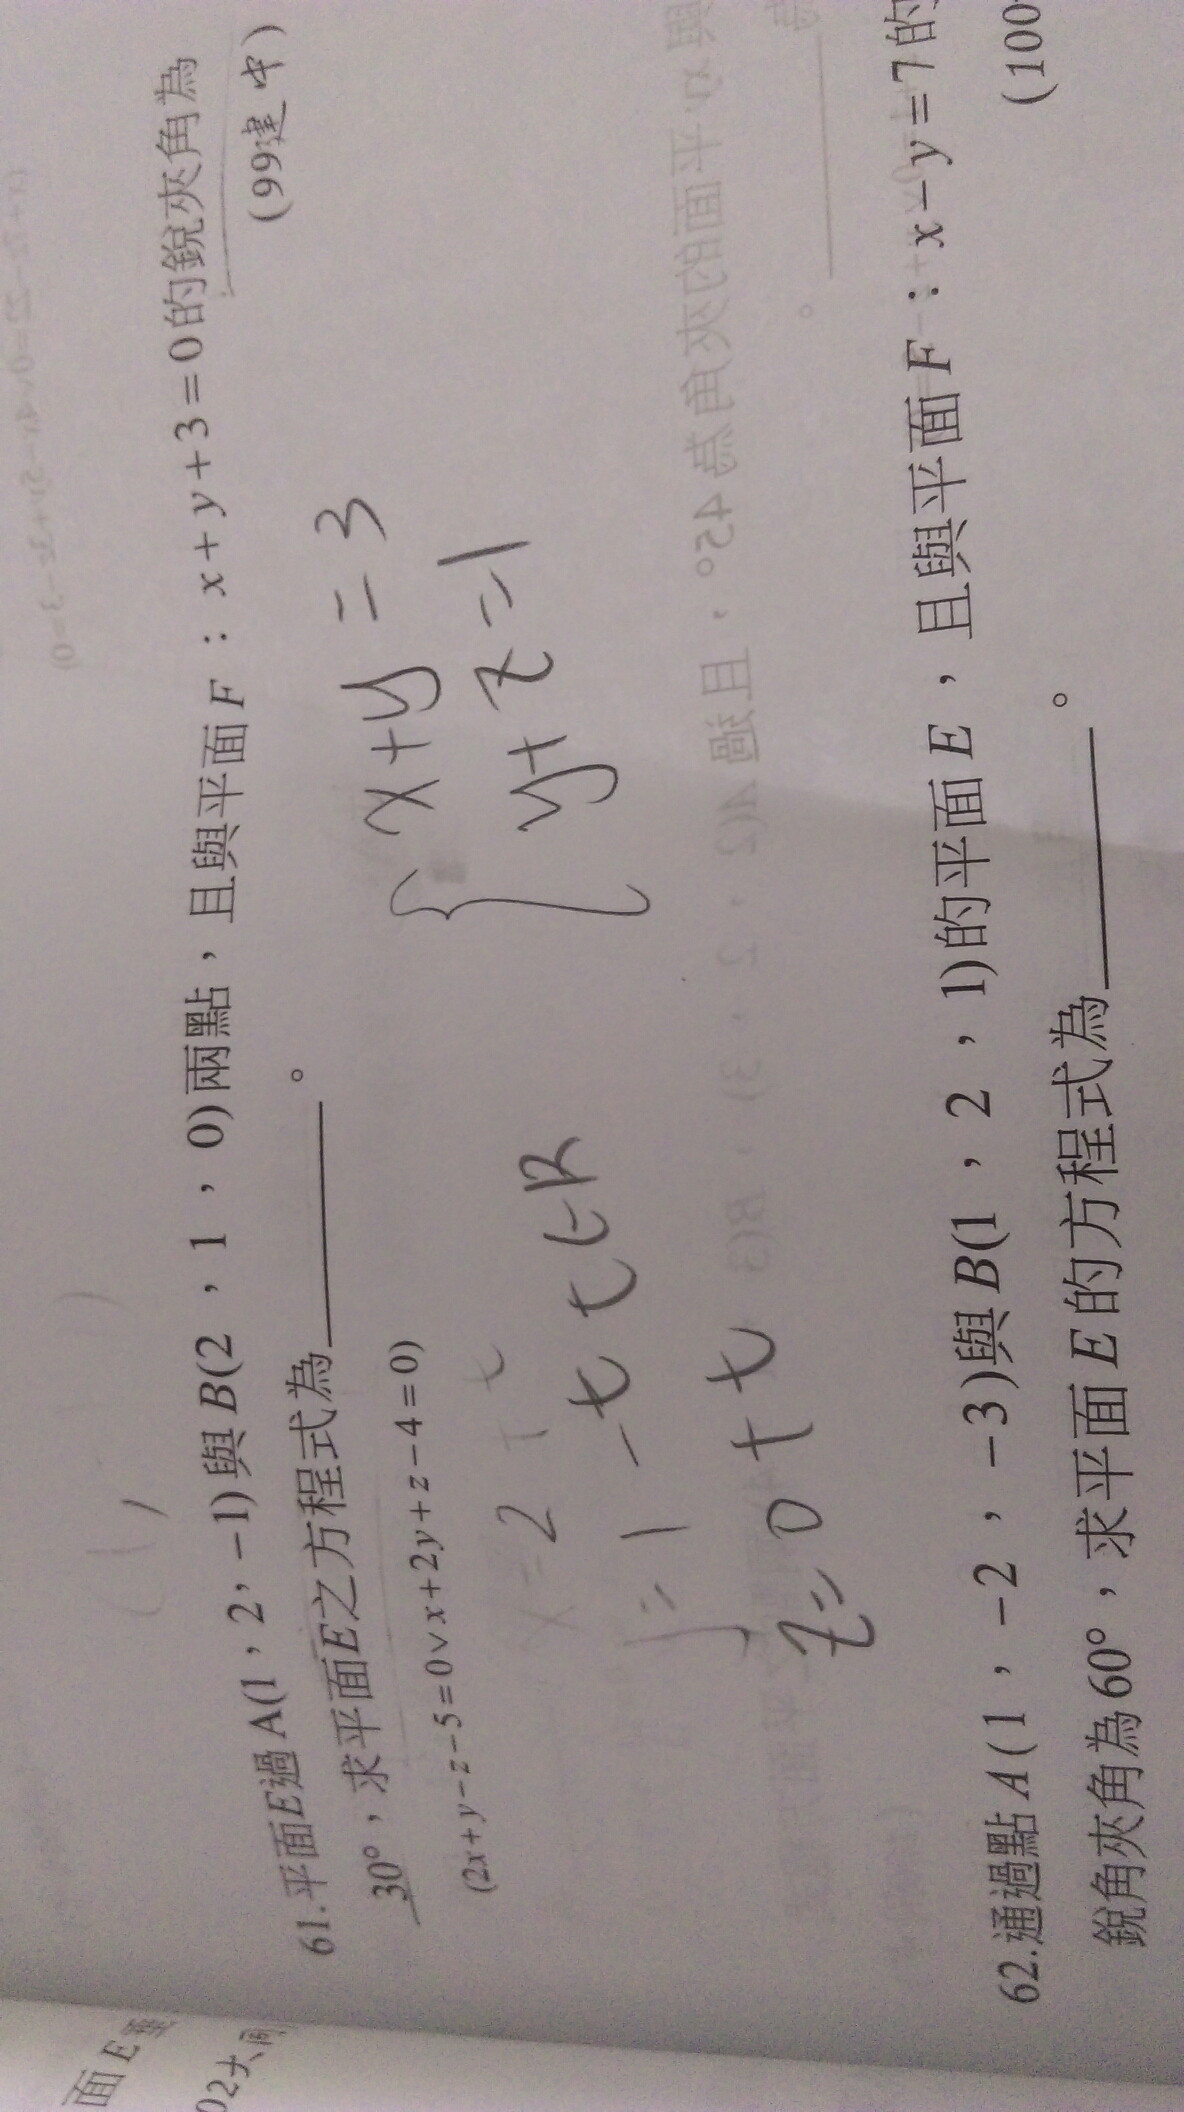 面E垂
02大同
61.平面E過A(1，2，-1)與B(2，1，0)兩點，且與平面F：x+y+3=0的銳夾角為
30°，求平面E之方程式為＿＿＿＿。
(99建中)
(2x+y-z-5=0∨x+2y+z-4=0)
x=2+t
y=1-t t∈R
z=0+t
{x+y=3
y+z=1
62.通過點A(1，-2，-3)與B(1，2，1)的平面E，且與平面F：x-y=7的
銳角夾角為60°，求平面E的方程式為＿＿＿＿。
(100